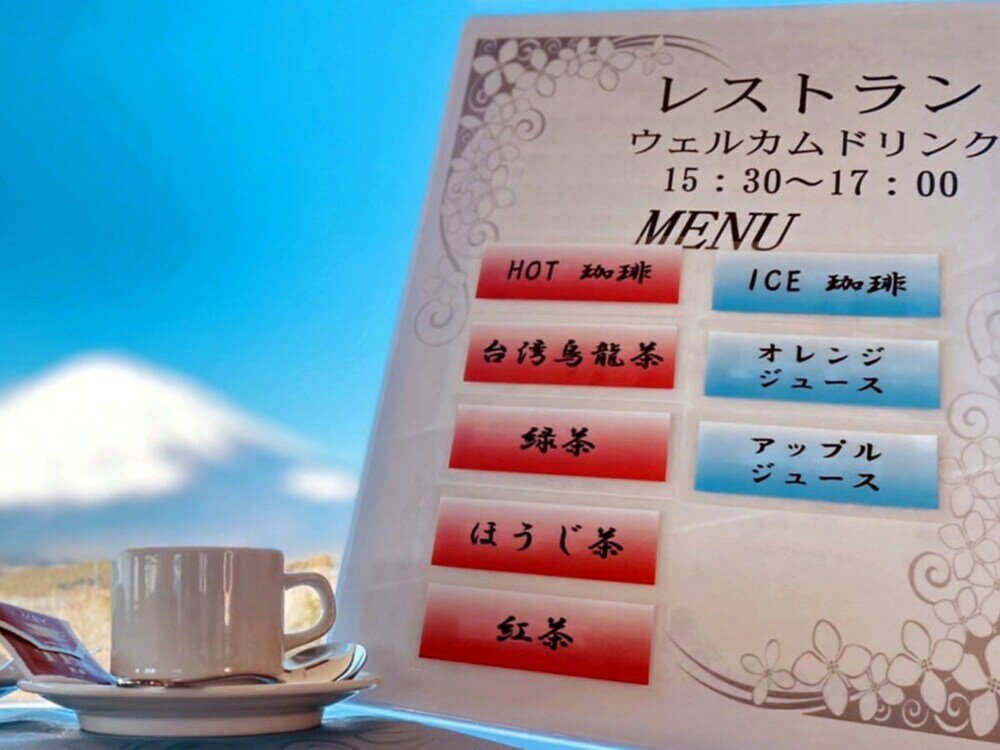 レストラン
ウェルカムドリンク
15:30～17:00
MENU
HOT 珈琲
台湾烏龍茶
緑茶
ほうじ茶
紅茶
ICE 珈琲
オレンジ
ジュース
アップル
ジュース